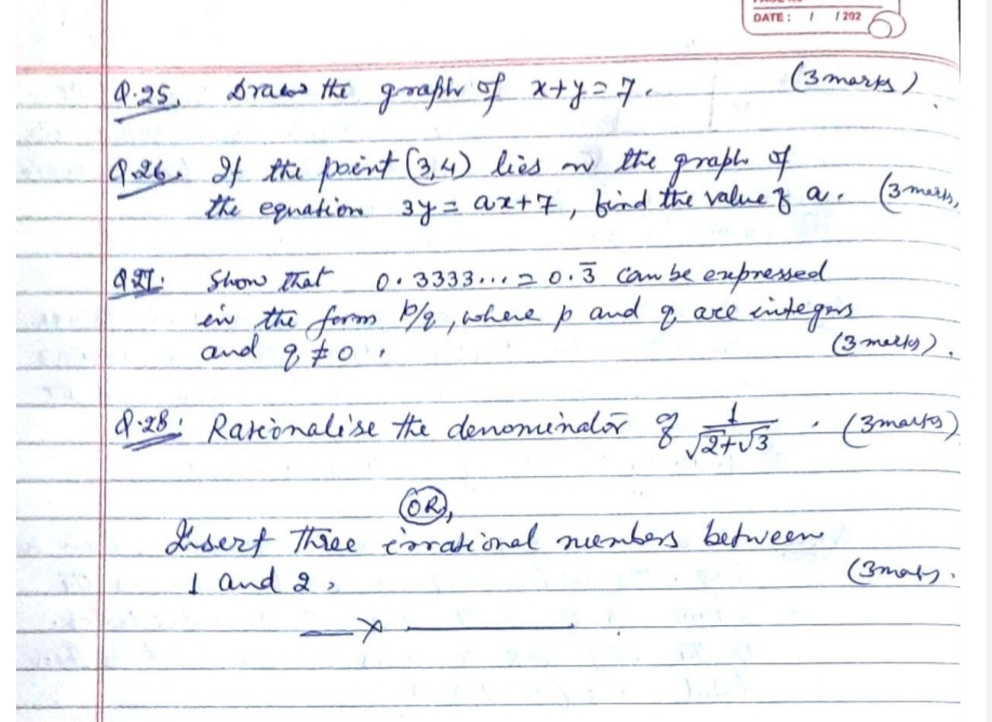 DATE: / /202
Q.25. Draw the graph of x+y=7. (3 marks)
Q.26. If the point (3,4) lies on the graph of
the equation 3y = ax+7, find the value of a. (3 marks,
Q27: Show that 0.3333... = 0.3̅ can be expressed
in the form p/q, where p and q are integers
and q ≠ 0. (3 marks).
Q.28: Rationalise the denominator of 1/(√2+√3). (3 marks)
OR,
Insert three irrational numbers between
1 and 2. (3 marks.